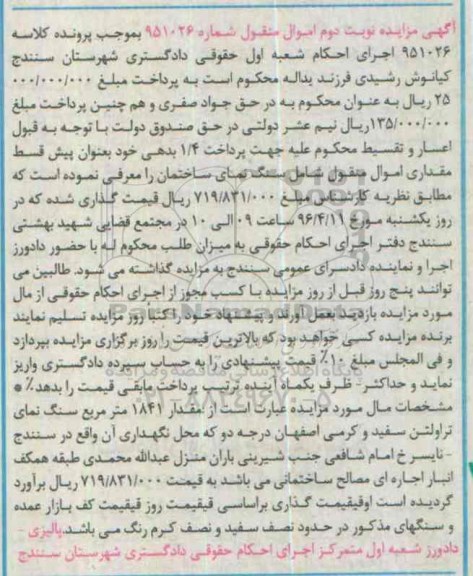 آگهی مزایده نوبت دوم اموال منقول شماره ۹۵۱۰۲۶ بموجب پرونده کلاسه
۹۵۱۰۲۶ اجرای احکام شعبه اول حقوقی دادگستری شهرستان سنندج
کیانوش رشیدی فرزند یداله محکوم است به پرداخت مبلغ ۰۰۰/۰۰۰/۰۰۰
۲۵ ریال به عنوان محکوم به در حق جواد صفری و هم چنین پرداخت مبلغ
۱۳۵/۰۰۰/۰۰۰ریال نیم عشر دولتی در حق صندوق دولت با توجه به قبول
اعسار و تقسیط محکوم علیه جهت پرداخت ۱/۴ بدهی خود بعنوان پیش قسط
مقداری اموال منقول شامل سنگ نمای ساختمان را معرفی نموده است که
مطابق نظریه کارشناس مبلغ ۷۱۹/۸۳۱/۰۰۰ ریال قیمت گذاری شده که در
روز یکشنبه مورخ ۹۶/۴/۱۱ ساعت ۰۹ الی ۱۰ در مجتمع قضایی شهید بهشتی
سنندج دفتر اجرای احکام حقوقی به میزان طلب محکوم له با حضور دادورز
اجرا و نماینده دادسرای عمومی سنندج به مزایده گذاشته می شود. طالبین می
توانند پنج روز قبل از روز مزایده با کسب مجوز از اجرای احکام حقوقی از مال
مورد مزایده بازدید بعمل آورند و پیشنهاد خود را کتبا روز مزایده تسلیم نمایند
برنده مزایده کسی خواهد بود که بالاترین قیمت را روز برگزاری مزایده بپردازد
و فی المجلس مبلغ ۱۰٪ قیمت پیشنهادی را به حساب سپرده دادگستری واریز
نماید و حداکثر- ظرف یکماه آینده ترتیب پرداخت مابقی قیمت را بدهد./*
مشخصات مال مورد مزایده عبارت است از مقدار ۱۸۴۱ متر مربع سنگ نمای
تراولتن سفید و کرمی اصفهان درجه دو که محل نگهداری آن واقع در سنندج
- نایسر خ امام شافعی جنب شیرینی باران منزل عبدالله محمدی طبقه همکف
انبار اجاره ای مصالح ساختمانی می باشد به قیمت ۷۱۹/۸۳۱/۰۰۰ ریال برآورد
گردیده است اوقیقیمت گذاری براساسی قیقیمت روز قیقیمت کف بازار عمده
و سنگهای مذکور در حدود نصف سفید و نصف کرم رنگ می باشد.پالیزی -
دادورز شعبه اول متمرکز اجرای احکام حقوقی دادگستری شهرستان سنندج